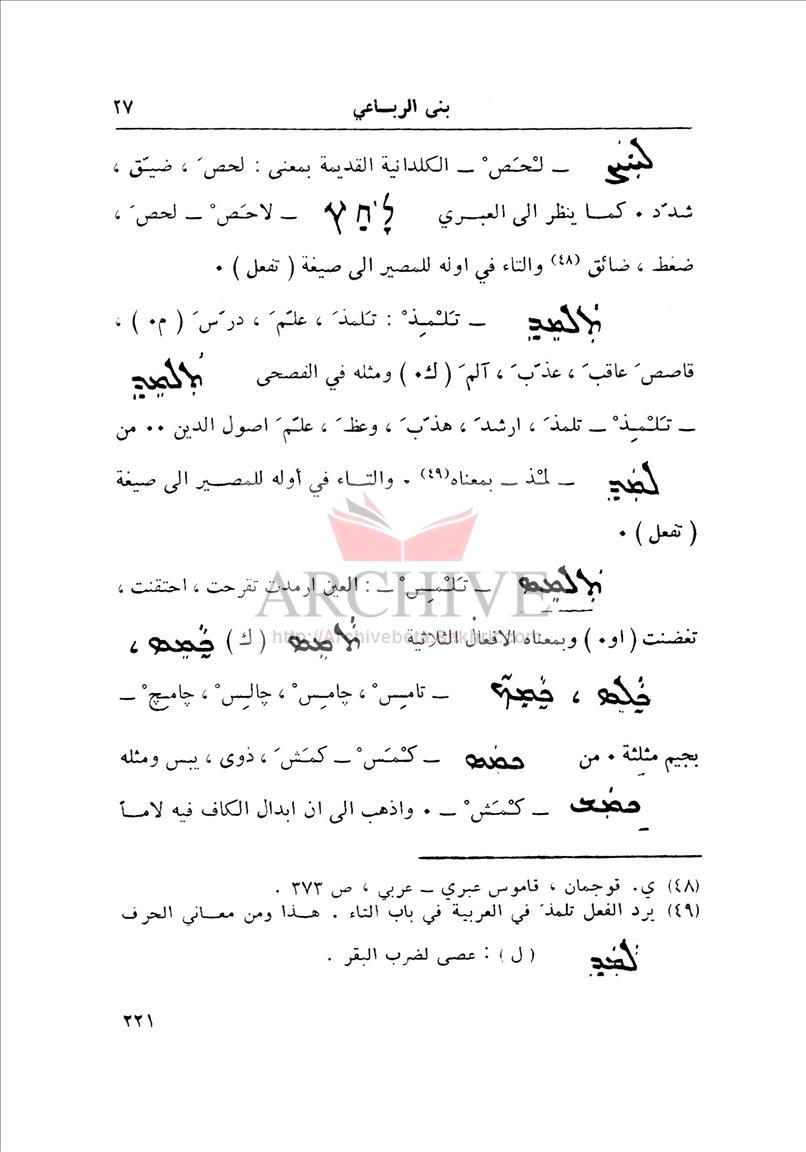 بنى الرباعي ٢٧
ـ لْحَص ْ ـ الكلدانية القديمة بمعنى : لحص َ ، ضيّق ،
شدّد ٠ كمـا ينظر الى العبـري לָחַץ ـ لاحَص ْ ـ لحص َ ،
ضغط ، ضائق (٤٨) والتاء في اوله للمصير الى صيغة ( تفعل ) ٠
ܬܠܡܕ ـ تَلْمِذ ْ : تَلمذ َ ، علّم َ ، درّس َ ( م٠ ) ،
قاصص َ عاقب َ ، عذّب َ ، آلم َ ( ك٠ ) ومثله في الفصحى ܬܠܡܕ
ـ تَلْمِذ ْ ـ تلمذ َ ، ارشد َ ، هذّب َ ، وعظ َ ، علّم َ اصول الدين ٠٠ من
ܠܡܕ ـ لمْذ ـ بمعناه(٤٩) ٠ والتـاء في أوله للمصـير الى صيغة
( تفعل ) ٠
ܬܠܡܣ ـ تَلْمِس ْ ـ : العين ارمدت تقرحت ، احتقنت ،
تغضنت ( او٠ ) وبمعناه الافعال الثلاثية ܬܡܣ ( ك ) ܟܡܣ ،
ܟܠܣ ، ـ تامِس ْ ، چامِس ْ ، چالِس ْ ، چامِچ ْ ـ
بجيم مثلثة ٠ من ܟܡܣ ـ كْمَس ْ ـ كمَش َ ، ذوى ، يبس ومثله
ܟܡܫ ـ كْمَش ْ ـ ٠ واذهب الى ان ابدال الكاف فيه لامـاً
(٤٨) ي. قوجمان ، قاموس عبري ـ عربي ، ص ٣٧٣ .
(٤٩) يرد الفعل تلمذ َ في العربية في باب التاء . هـذا ومن معـاني الحرف
ܠܡܕ ( ل ) : عصى لضرب البقر .
٢٢١
ARCHIVE